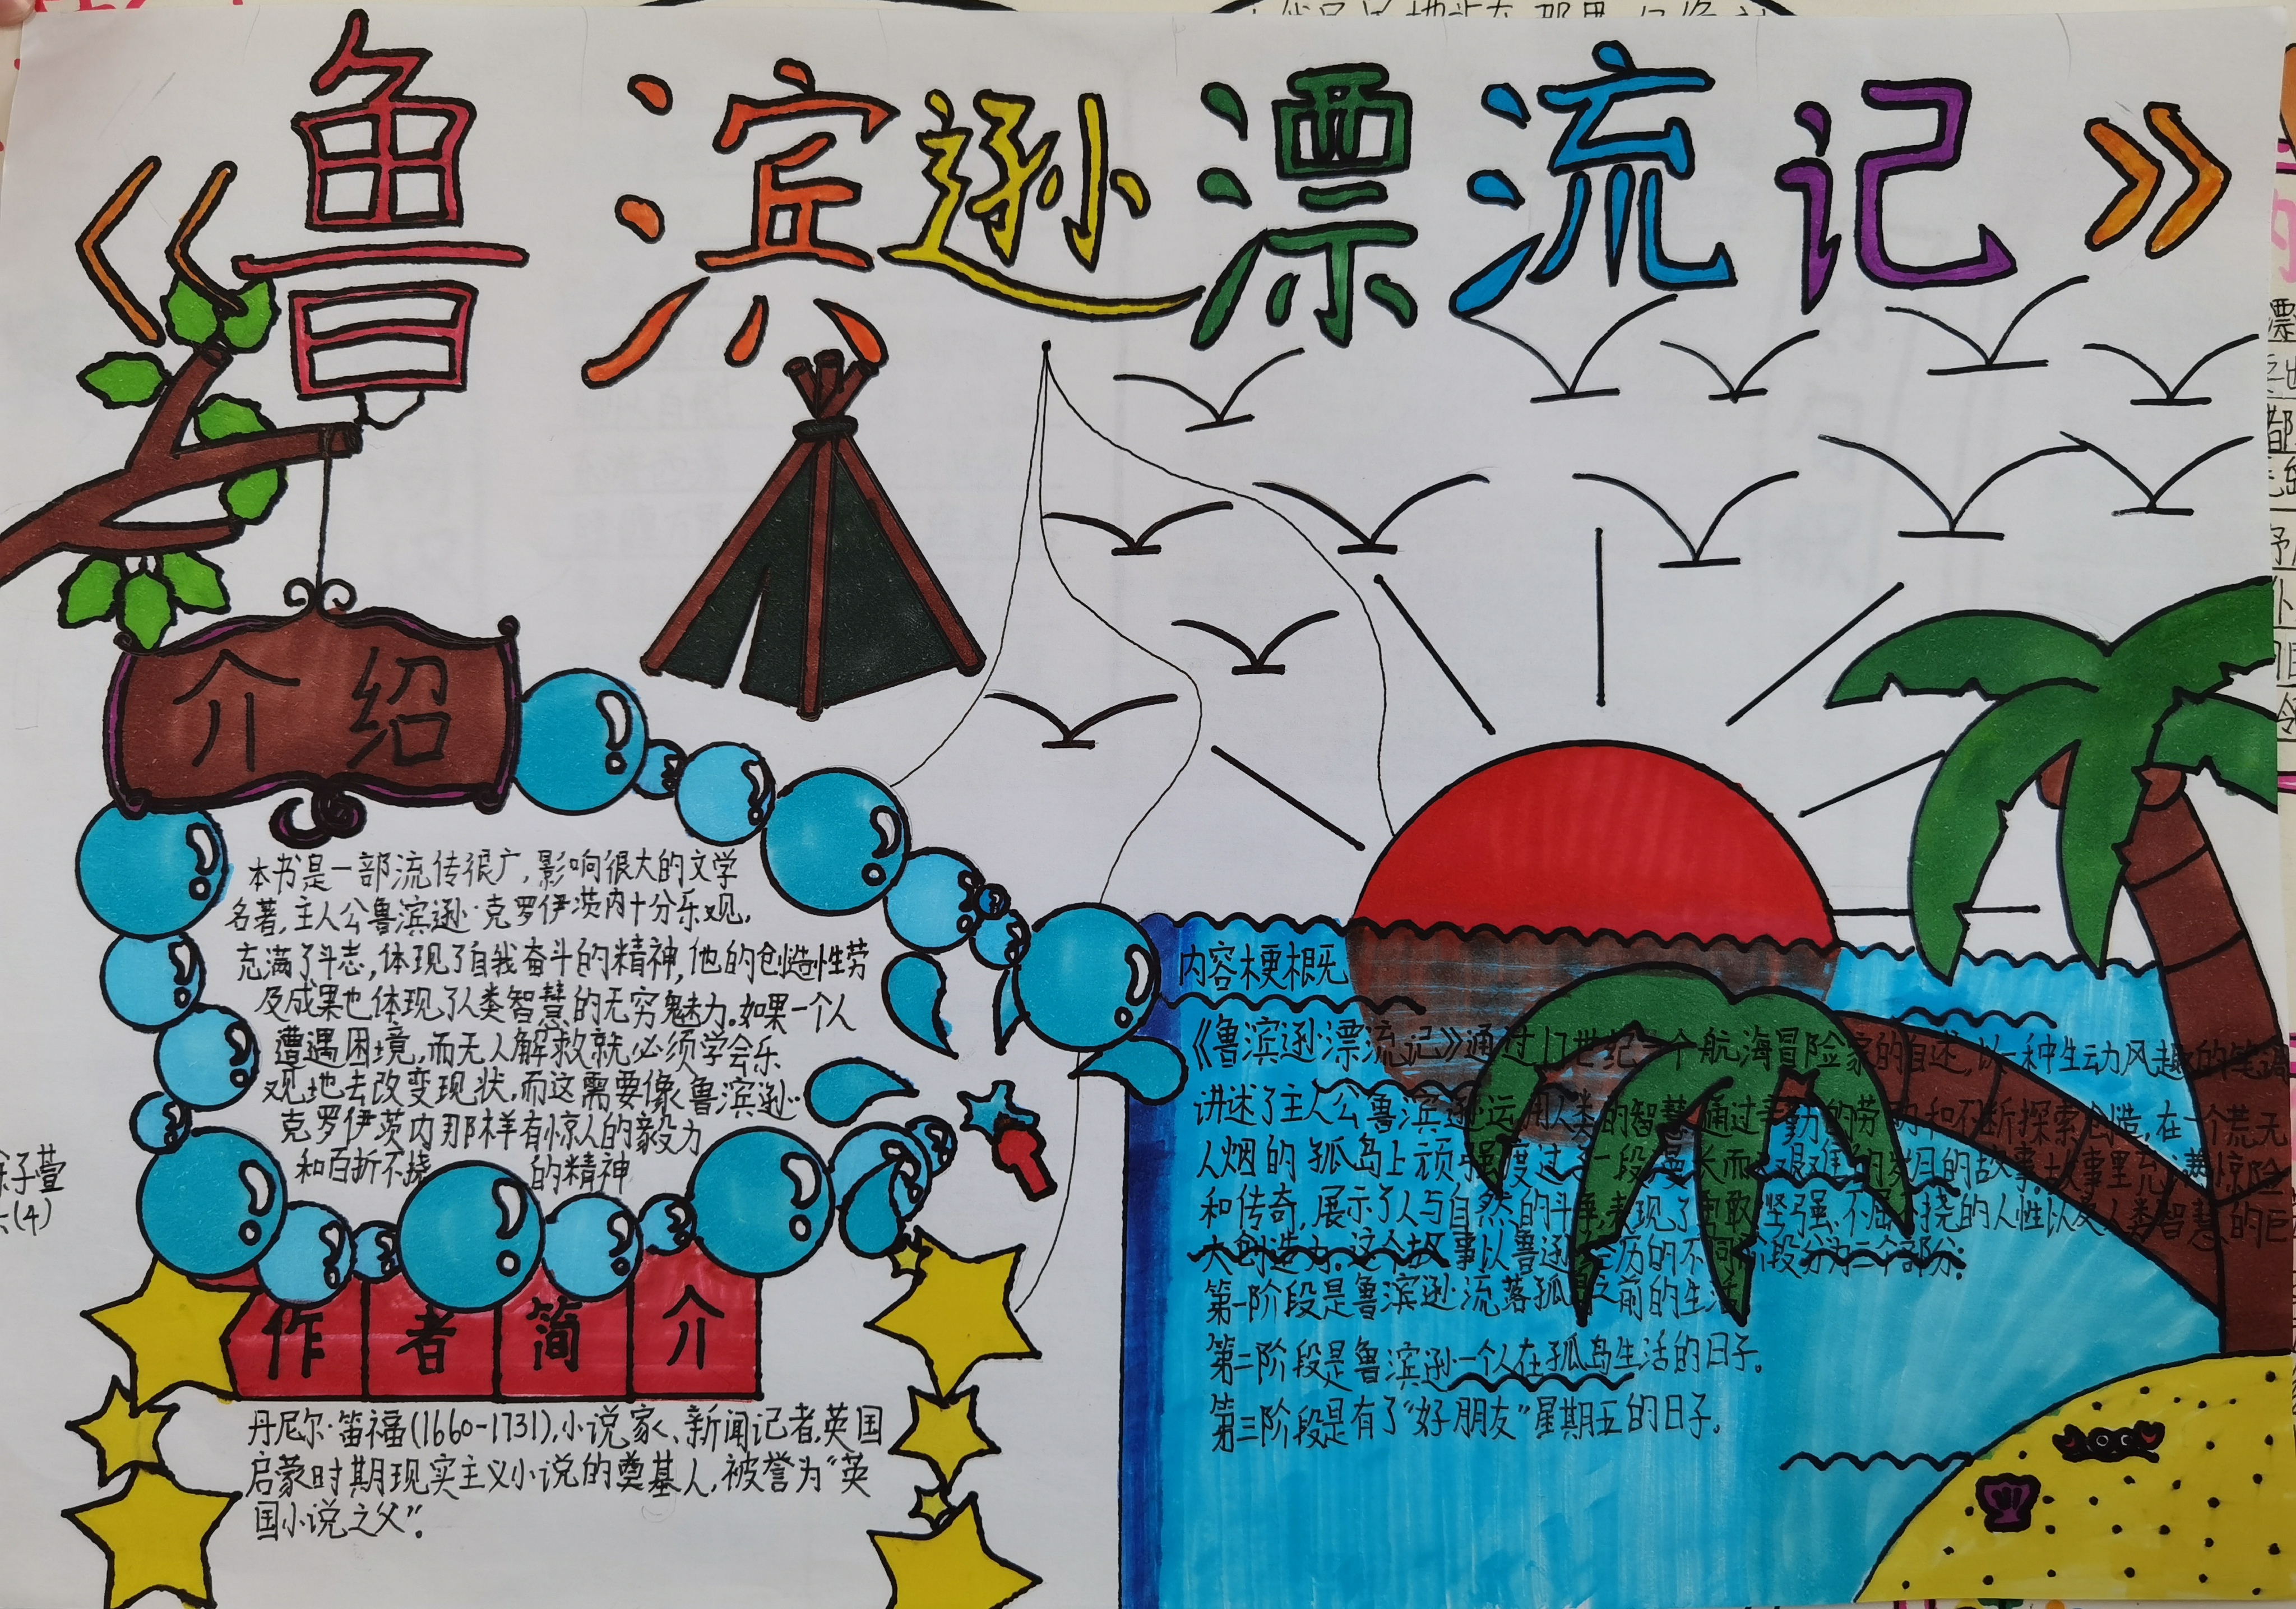 《鲁滨逊漂流记》
介绍
本书是一部流传很广,影响很大的文学
名著,主人公鲁滨逊·克罗伊茨内十分乐观,
充满了斗志,体现了自我奋斗的精神,他的创造性劳
及成果也体现了人类智慧的无穷魅力。如果一个人
遭遇困境,而无人解救就必须学会乐
观地去改变现状,而这需要像鲁滨逊·
克罗伊茨内那样有惊人的毅力
和百折不挠的精神
作者简介
丹尼尔·笛福(1660-1731),小说家、新闻记者,英国
启蒙时期现实主义小说的奠基人,被誉为“英
国小说之父”。
内容梗概
《鲁滨逊漂流记》通过17世纪一个航海冒险家的自述,以一种生动风趣的笔调
讲述了主人公鲁滨逊运用人类的智慧通过辛勤的劳动和不断探索创造,在一个荒无
人烟的孤岛上顽强度过了一段漫长而又艰难的岁月的故事。故事里充满惊险
和传奇,展示了人与自然的斗争,表现了勇敢坚强、不屈不挠的人性以及人类智慧的巨
大创造力。这个故事以鲁逊经历的不同阶段分为三个部分:
第一阶段是鲁滨逊流落孤岛之前的生活
第二阶段是鲁滨逊一个人在孤岛生活的日子。
第三阶段是有了“好朋友”星期五的日子。
子萱
(4)